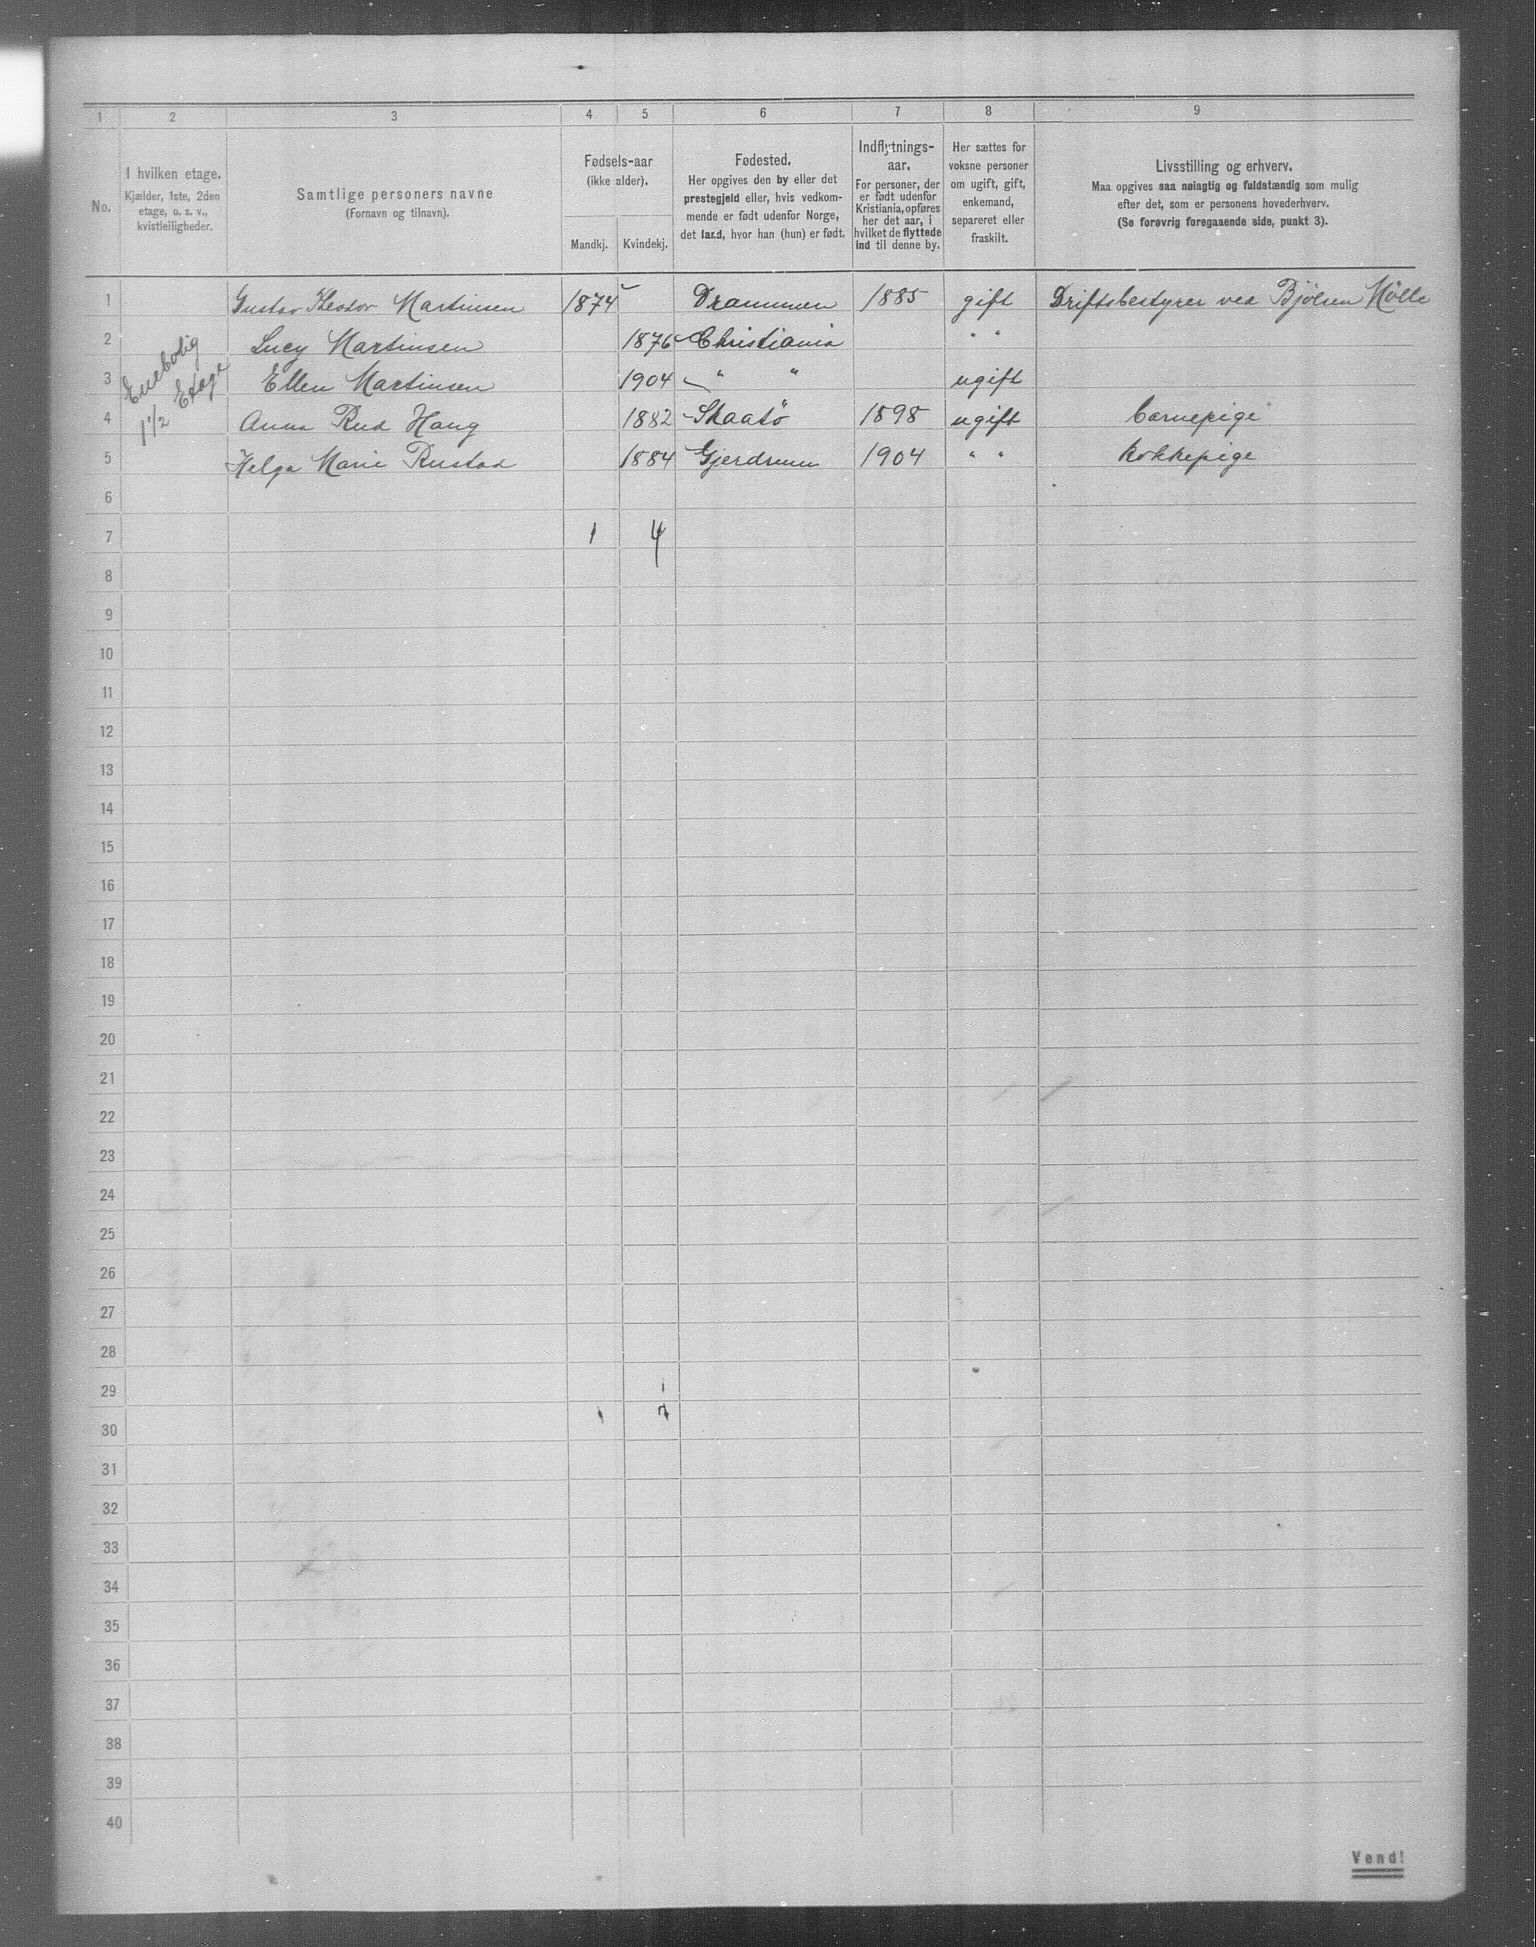 1 2 3 4 5 6 7 8 9
No.
I hvilken etage.
Kjælder, 1ste, 2den
etage, o. s. v.,
kvistleiligheder.
Samtlige personers navne
(Fornavn og tilnavn).
Fødsels-aar
(ikke alder).
Mandkj. Kvindekj.
Fødested.
Her opgives den by eller det
prestegjeld eller, hvis vedkom-
mende er født udenfor Norge,
det land, hvor han (hun) er født.
Indflytnings-
aar.
For personer, der
er født udenfor
Kristiania, opføres
her det aar, i
hvilket de flyttede
ind til denne by.
Her sættes for
voksne personer
om ugift, gift,
enkemand,
separeret eller
fraskilt.
Livsstilling og erhverv.
Maa opgives saa nøiagtig og fuldstændig som mulig
efter det, som er personens hovederhverv.
(Se forøvrig foregaaende side, punkt 3).
Enebolig
1½ Etage
1 Gustav Theodor Martinsen 1874 Drammen 1885 gift Driftsbestyrer ved Bjølsen Mølle
2 Lucy Martinsen 1876 Christiania " "
3 Ellen Martinsen 1904 " " ugift
4 Anna Rud Haug 1882 Skaatö 1898 ugift barnepige
5 Helga Marie Rustad 1884 Gjerdrum 1904 " " kokkepige
6
7 1 4
8
9
10
11
12
13
14
15
16
17
18
19
20
21
22
23
24
25
26
27
28
29
30
31
32
33
34
35
36
37
38
39
40
Vend!